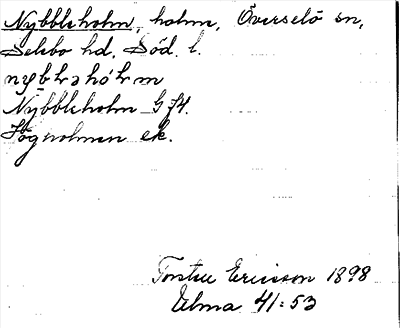 Nybbleholm, holme, Överselö sn,
Selebo hd, Söd. l.
Nybbleholm G f4.
Högholmen ek.
Torsten Ericsson 1898
Elma 41:53